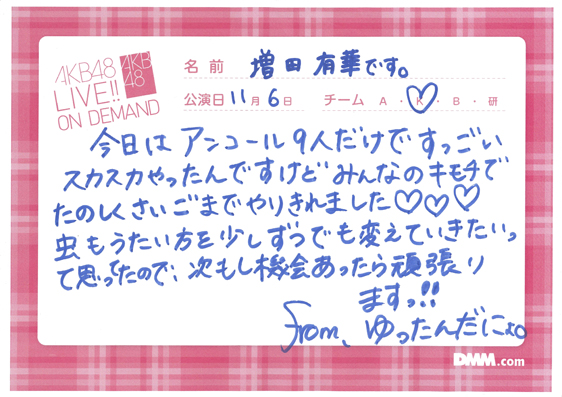 AKB48
LIVE!!
ON DEMAND
AKB
48
名前 増田有華です。
公演日 11月6日 チーム A・K・B・研
今日は アンコール9人だけで すっごい
スカスカやったんですけど みんなのキモチで
たのしくさいごまでやりきれました♡♡♡
虫もうたい方を少しずつでも変えていきたいっ
て思ってたので、次もし機会あったら頑張り
ますっ!!
from、ゆったんだにょo
DMM.com